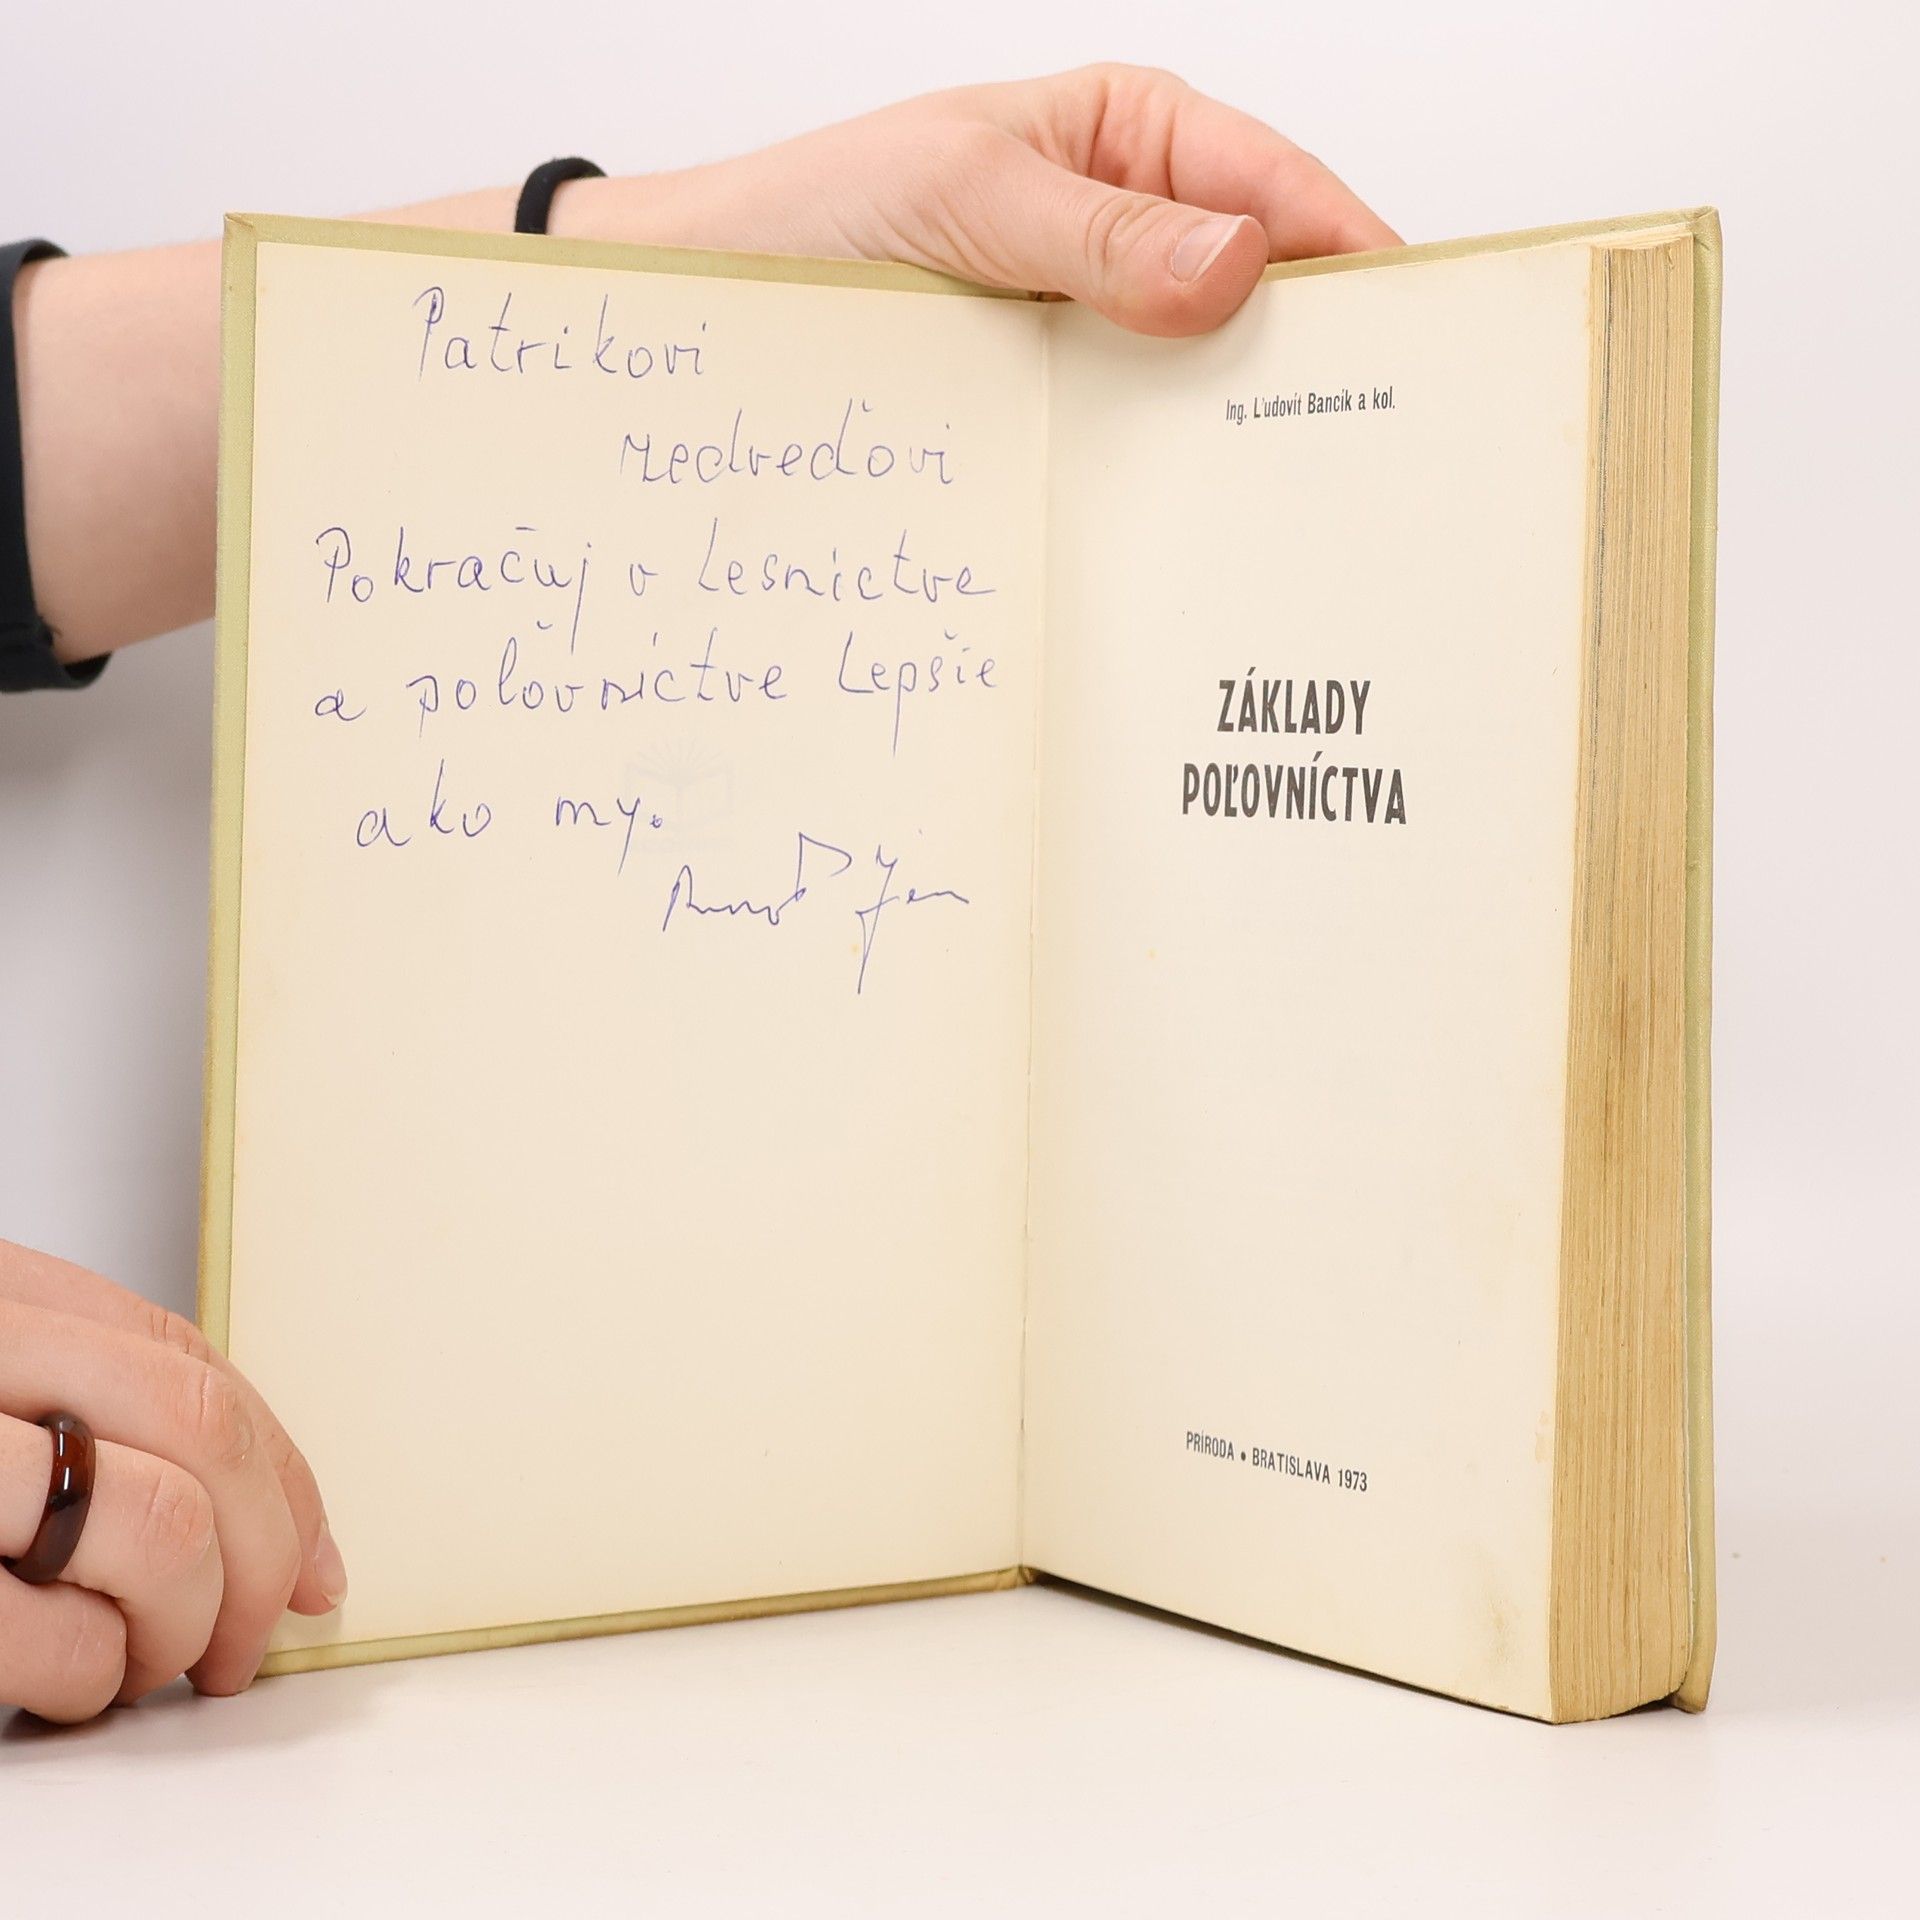 Patrikovi
Medveďovi
Pokračuj v Lesníctve
a poľovníctve Lepšie
ako my.
Ing. Ľudovít Bancík a kol.
ZÁKLADY
POĽOVNÍCTVA
PRÍRODA • BRATISLAVA 1973